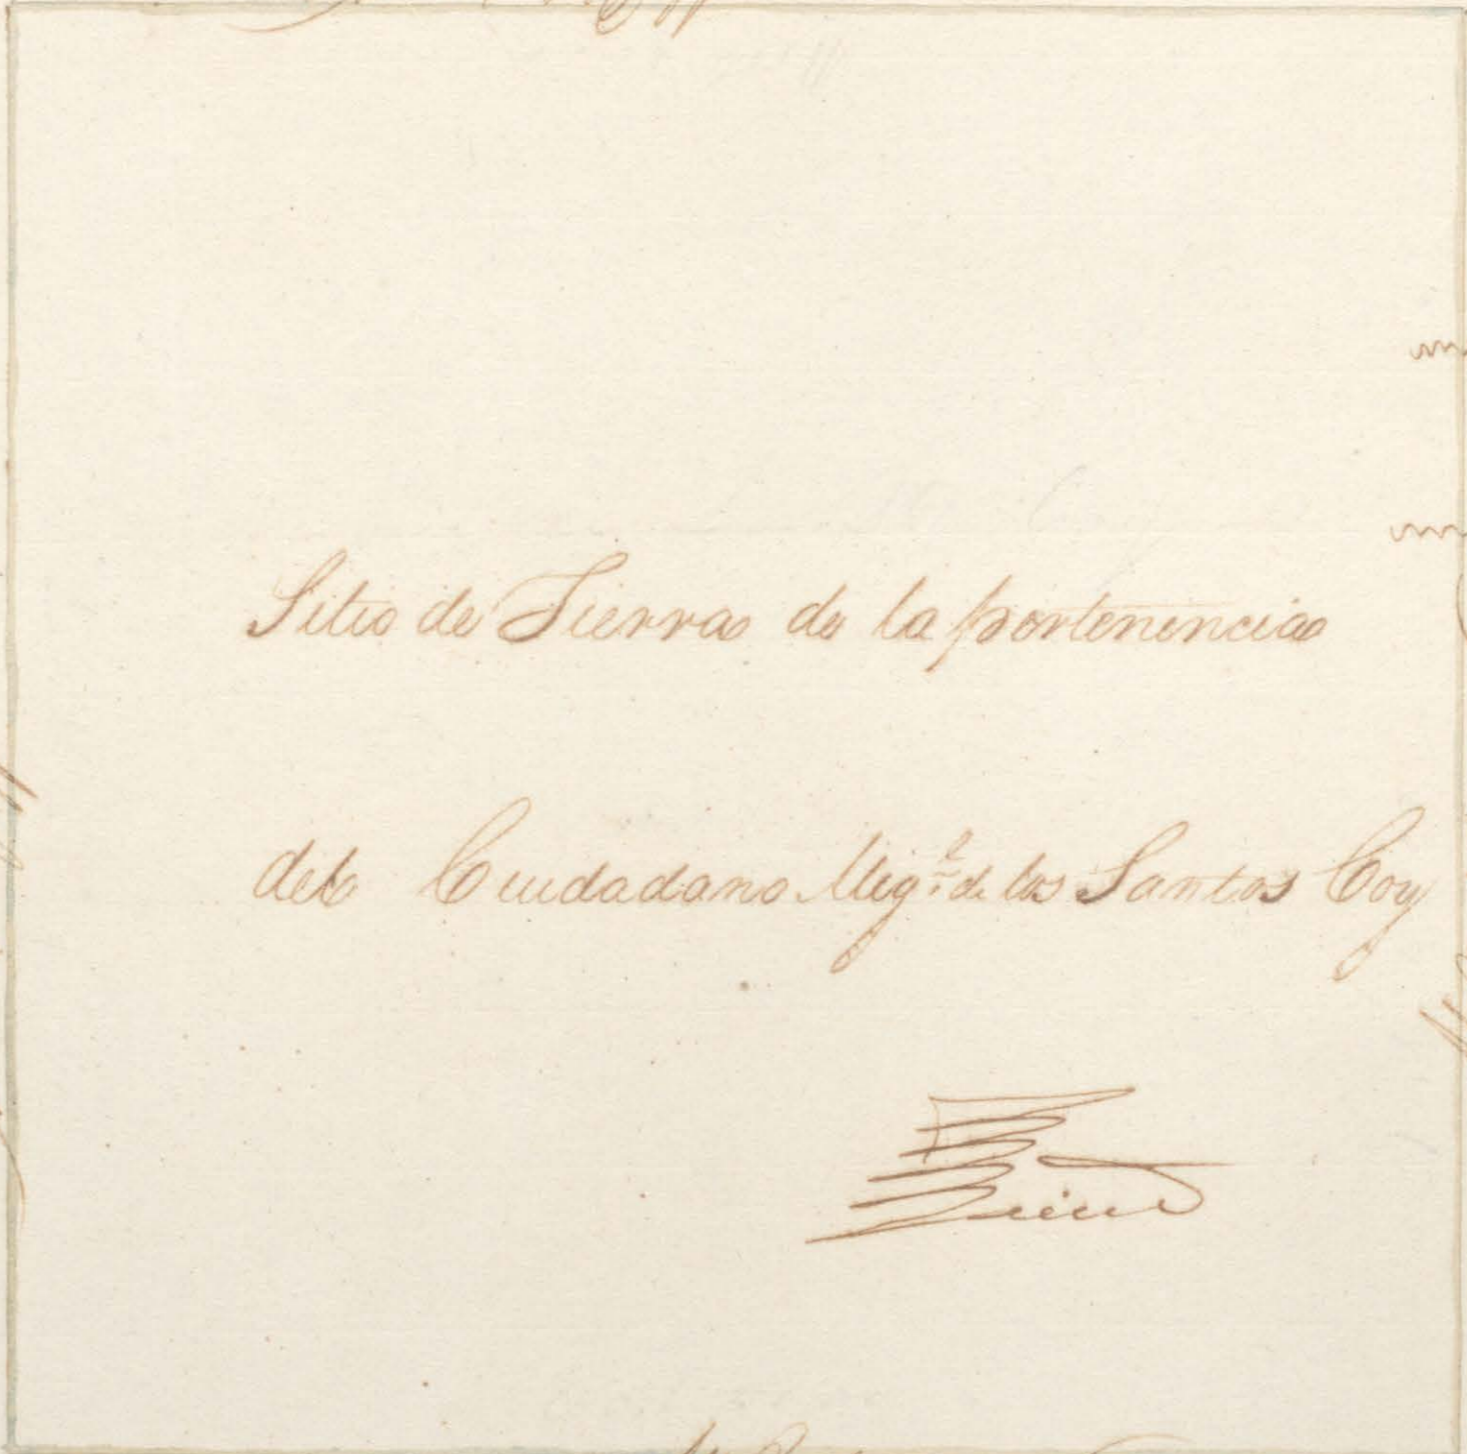 Sitio de Tierra de la pertenencia
del Ciudadano Mig.l de los Santos Coy